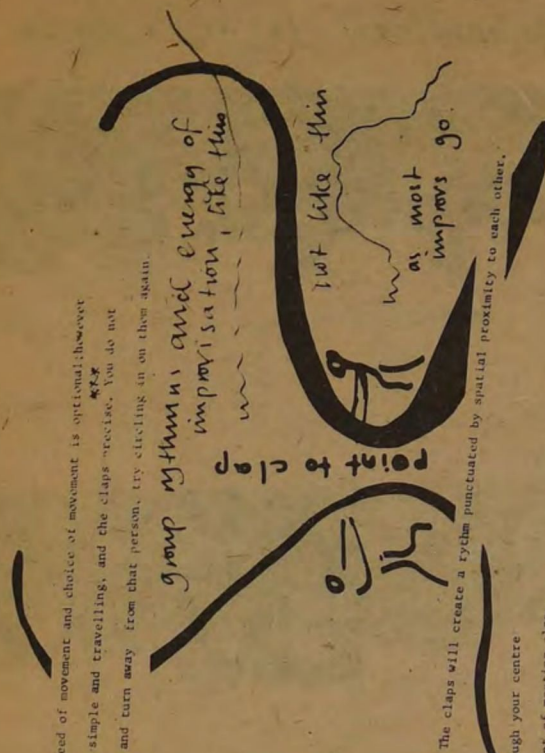 eed of movement and choice of movement is optional;however
simple and travelling, and the claps precise. You do not
and turn away from that person, try circling in on them again.
group rythmns and energy of
improvisation, like this
not like this
as most
improvs go.
point to clap
The claps will create a rythm punctuated by spatial proximity to each other.
ugh your centre